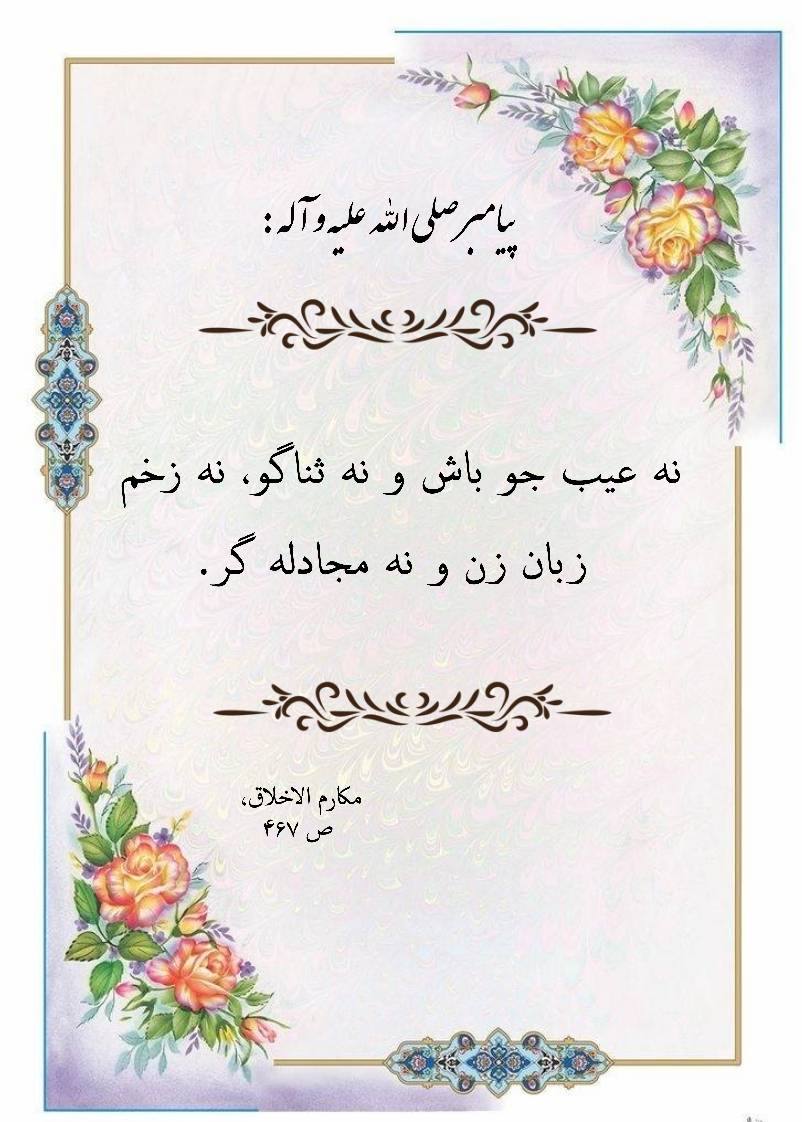 پیامبر صلی الله علیه و آله:
نه عیب جو باش و نه ثناگو، نه زخم
زبان زن و نه مجادله گر.
مکارم الاخلاق،
ص ۴۶۷